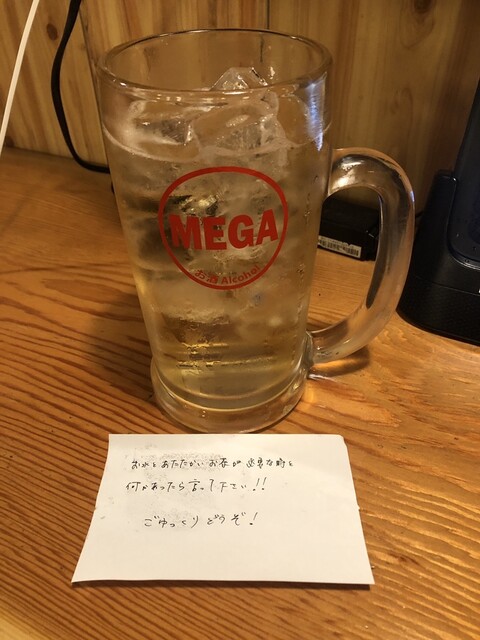 MEGA
お酒 Alcohol
お水とあたたかいお茶が必要な時と
何かあったら言って下さい!!
ごゆっくりどうぞ!